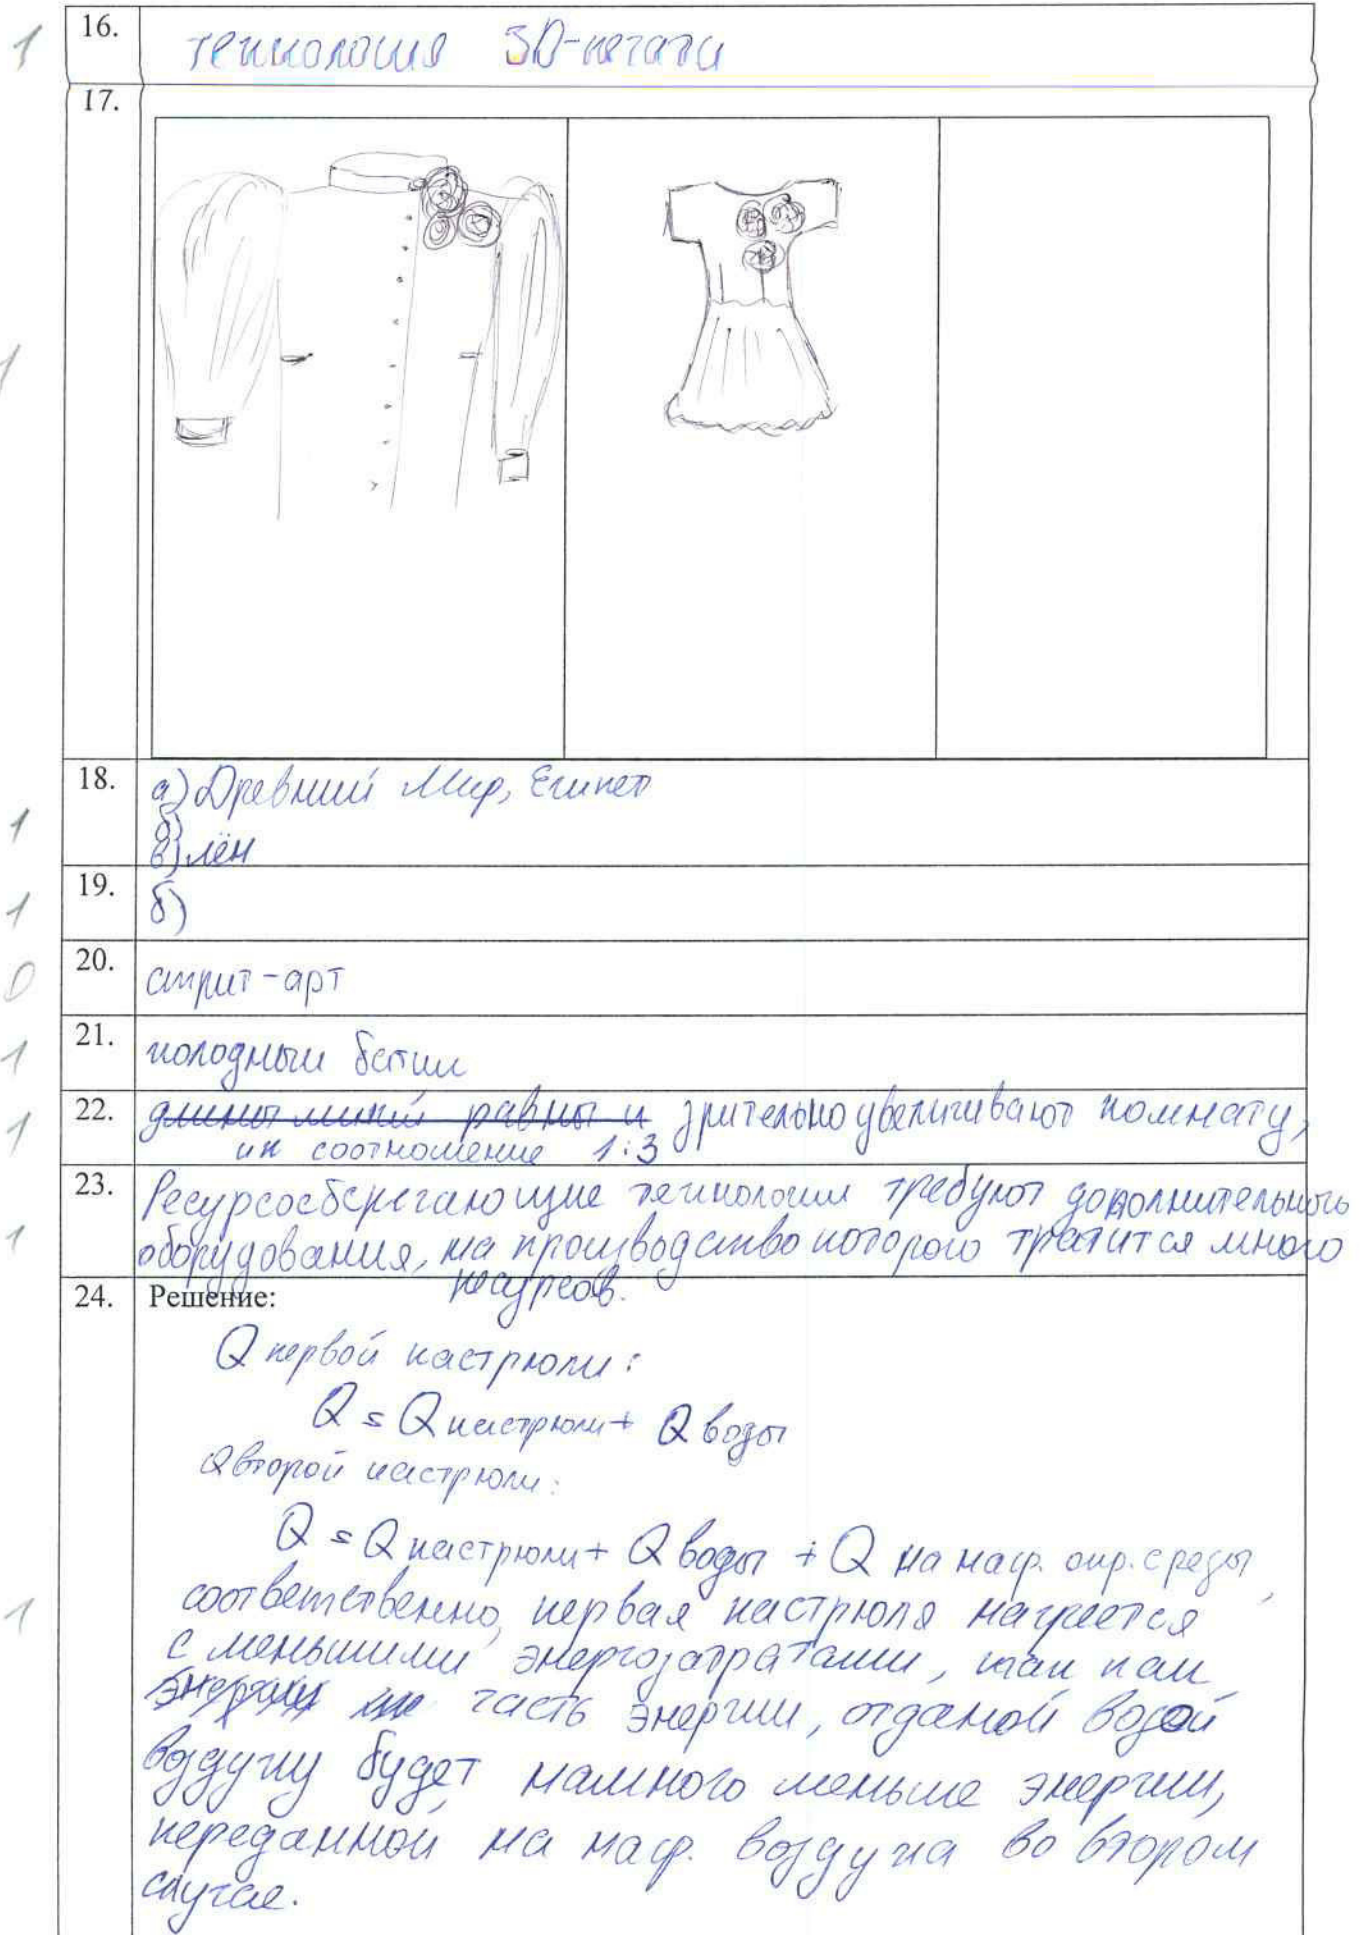 1
16.
технология 3D-печати
17.
1
18.
а) Древний Мир, Египет
б)
1
в) лён
19.
1
б)
20.
0
стрит-арт
21.
1
холодный батик
22.
длины линий равны и зрительно увеличивают комнату,
1
их соотношение 1:3
23.
Ресурсосберегающие технологии требуют дополнительного
1
оборудования, на производство которого тратится много
ресурсов.
24.
Решение:
Q первой кастрюли:
Q = Q кастрюли + Q воды
Q второй кастрюли:
Q = Q кастрюли + Q воды + Q на нагр. окр. среды,
1
соответственно, первая кастрюля нагреется
с меньшими энергозатратами, так как
часть энергии, отданой водой
воздуху будет намного меньше энергии,
переданной на нагр. воздуха во втором
случае.